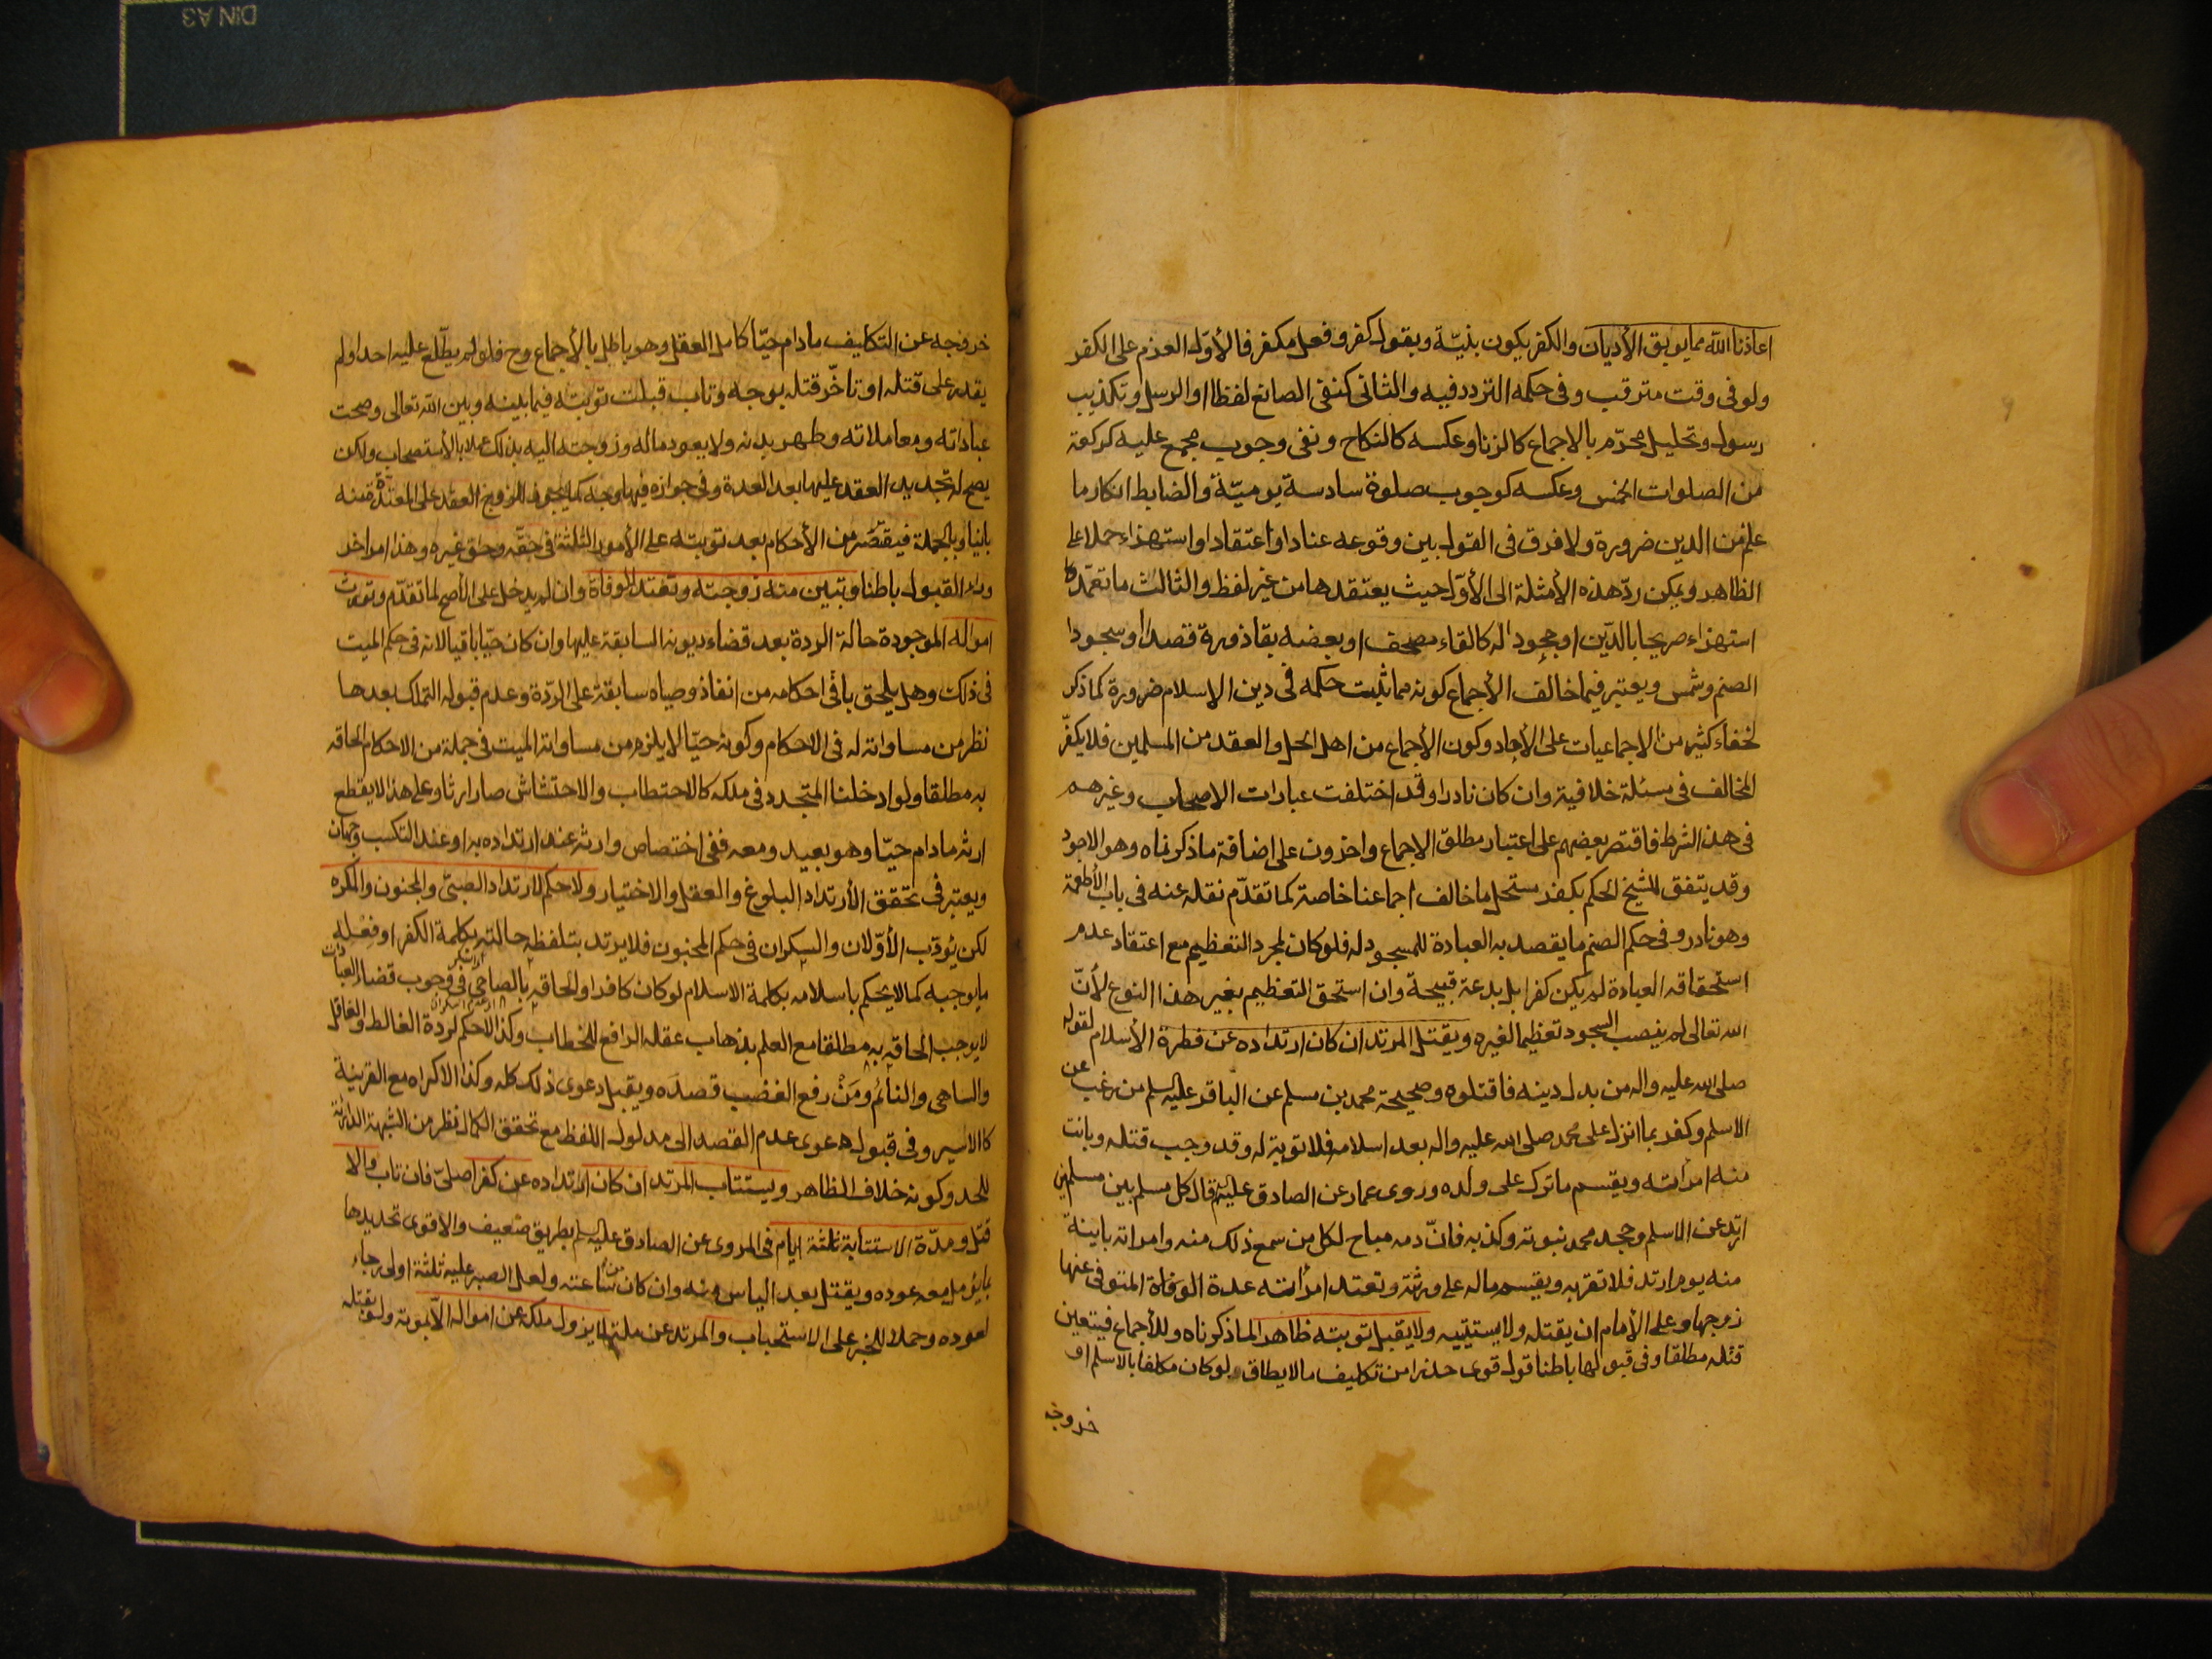 اعاذنا الله مما يوبق الأديان والكفر يكون بنيّة وبقول كفر وفعل مكفر فالأوّل العزم على الكفر
ولو فى وقت مترقب وفى حكمه التردد فيه والثانى كنفى الصانع لفظا او الرسل وتكذيب
رسول وتحليل محرّم بالاجماع كالزنا وعكسه كالنكاح ونفى وجوب مجمع عليه كركعة
من الصلوات الخمس وعكسه كوجوب صلوة سادسة يوميّة والضابط انكار ما
علم من الدين ضرورة ولا فرق فى القول بين وقوعه عنادا او اعتقادا او استهزاء حملا على
الظاهر ويمكن ردّ هذه الأمثلة الى الأوّل حيث يعتقدها من غير لفظ والثالث ما تعمّده
استهزاء صريحا بالدّين او جحودا له كالقاء مصحف او بعضه بقاذورة قصدا او سجودا
الصنم وشمس ويعتبر فيما خالف الأجماع كونه مما ثبت حكمه فى دين الاسلام ضرورة كما ذكر
لخفاء كثير من الاجماعيات على الأحاد وكون الأجماع من اهل الحل والعقد من المسلمين فلا يكفّر
المخالف فى مسئلة خلافية وان كان نادرا وقد اختلفت عبارات الاصحاب وغيرهم
فى هذا الشرط فاقتصر بعضهم على اعتبار مطلق الاجماع واخرون على اضافة ما ذكرناه وهو الاجود
وقد يتفق للشيخ الحكم بكفر مستحل ما خالف اجماعنا خاصة كما تقدّم نقله عنه فى باب الأطعمة
وهو نادر وفى حكم الصنم ما يقصد به العبادة للمسجود له فلو كان لمجرد التعظيم مع اعتقاد عدم
استحقاقه العبادة لم يكن كفرا بل بدعة قبيحة وان استحق التعظيم بغير هذا النوع لأنّ
الله تعالى لم ينصب السجود تعظيما لغيره ويقتل المرتد ان كان ارتداده عن فطرة الأسلام لقوله
صلى الله عليه واله من بدل دينه فاقتلوه وصحيحة محمد بن مسلم عن الباقر عليه السلم من رغب عن
الاسلم وكفر بما انزل على محمد صلى الله عليه واله بعد اسلامه فلا توبة له وقد وجب قتله وبانت
منه امرأته ويقسم ما ترك على ولده وروى عمار عن الصادق عليه السلم قال كل مسلم بين مسلمين
ارتدّ عن الاسلم وجحد محمد نبوته وكذبه فانّ دمه مباح لكل من سمع ذلك منه وامراته باينة
منه يوم ارتد فلا تقربه ويقسم ماله على ورثته وتعتد امرأته عدة الوفاة المتوفى عنها
زوجها وعلى الأمام ان يقتله ولا يستتيبه ولا يقبل توبته ظاهرا لما ذكرناه وللأجماع فيتعين
قتله مطلقا وفى قبولها باطنا قول قوى حذرا من تكليف ما لا يطاق لو كان مكلفا بالاسلم او
خروجه
خروجه عن التكليف مادام حيّا كامل العقل وهو باطل بالأجماع وح فلو لم يطّلع عليه احد او لم
يقدر على قتله او تاخّر قتله بوجه وتاب قبلت توبته فيما بينه وبين الله تعالى وصحت
عباداته ومعاملاته وطهر بدنه ولا يعود ماله وزوجته اليه بذلك عملا بالأستصحاب ولكن
يصح له تجديد العقد عليها بعد العدة وفى جوازه فيها وجه كما يجوز للزوج العقد على المعتدّة منه
باينا وبالجملة فيقتصر من الأحكام بعد توبته على الأمور الثلثة فى حقّه وحق غيره وهذا امر اخر
وراء القبول باطنا وتبين منه زوجته وتعتد للوفاة وان لم يدخل على الأصح لما تقدّم وتورث
امواله الموجودة حالة الردة بعد قضاء ديونه السابقة عليها وان كان حيّا باقيا لانه فى حكم الميت
فى ذلك وهل يلحق باقى احكامه من انفاذ وصاياه سابقة على الردّة وعدم قبوله التملك بعدها
نظر من مساواته له فى الاحكام وكونه حيّا لا يلزم من مساواته الميت فى جملة من الاحكام الحاقه
به مطلقا ولو ادخلنا المتجدد فى ملكه كالاحتطاب والاحتشاش صار ارثا وعلى هذا لا يقطع
ارثه مادام حيّا وهو بعيد ومعه ففى اختصاص وارثه عند ارتداده به او عند التكسب وجهان
ويعتبر فى تحقق الأرتداد البلوغ والعقل والاختيار ولا حكم لارتداد الصبىّ والمجنون والمكره
لكن يؤدّب الأوّلان والسكران فى حكم المجنون فلا يرتد بتلفظه حالته بكلمة الكفر او فعله
ما يوجبه كما لا يحكم باسلامه بكلمة الاسلام لو كان كافرا والحاقه بالصاحى فى وجوب قضاء العبادات
لا يوجب الحاقه به مطلقا مع العلم بذهاب عقله الرافع للخطاب وكذا لا حكم لردة الغالط والغافل
والساهى والنائم ومَنْ رفع الغضب قصده ويقبل دعوى ذلك كله وكذا الاكراه مع القرينة
كالاسير وفى قبول دعوى عدم القصد الى مدلول اللفظ مع تحقق الكمال نظر من الشبهة الدارئة
للحد وكونه خلاف الظاهر ويستتاب المرتد ان كان ارتداده عن كفر اصلىّ فان تاب والا
قتل ومدّة الاستتابة ثلثة ايام فى المروى عن الصادق عليه السلم بطريق ضعيف والاقوى تحديدها
بما يؤمل معه عوده ويقتل بعد الياس منه وان كان من ساعته ولعل الصبر عليه ثلثة اولى رجاء
لعوده وحملا للخبر على الاستحباب والمرتد عن ملة لا يزول ملكه عن امواله الا بموته ولو بقتله
DIN A3